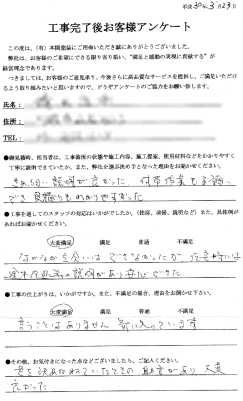 平成30年3月29日
工事完了後お客様アンケート
この度は、(有)本間塗装にご用命いただき誠にありがとうございました。
弊社は、お客様のご希望にできる限り寄り添い、"満足と感動の実現に貢献する"が
経営理念であります。
つきましては、お客様のご意見承り、今後さらに高品質なサービスを提供し、ご満足いただけ
るよう取り組みたいと思いますので、どうぞアンケートのご協力をお願い致します。
氏名:
住所:
TEL:
●御見積時、担当者は、工事箇所の状態や施工内容、施工提案、使用材料などをわかりやすく
丁寧に説明できていたか、また、弊社を選ぶ決め手となった理由をお聞かせください。
説明が良かった
でき 見積りもわかりやすかった
●工事を通してのスタッフの対応はいかがでしたか。(挨拶、清掃、説明など)また、具体例が
あればお聞かせください。
大変満足 満足 普通 不満足
なかなか立会いは できなかったが
説明があり安心できた
●工事の仕上がりは、いかがですか。また、不満足の場合、理由をお聞かせ下さい。
大変満足 満足 普通 不満足
言うことはありません 気に入っています
●その他、お気付きになった点などございましたら、ご記入ください。
大変満足 満足 普通 不満足
色を決めかねていたときの 助言があり 大変
良かった